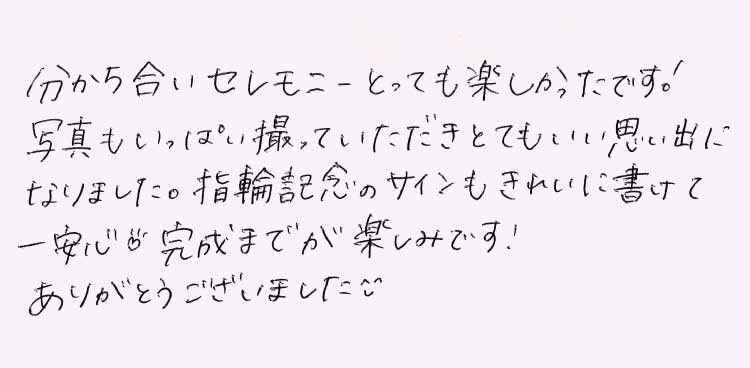 分から合いセレモニーとっても楽しかったです!
写真もいっぱい撮っていただきとてもいい思い出に
なりました。指輪記念のサインもきれいに書けて
一安心 完成までが楽しみです!
ありがとうございました